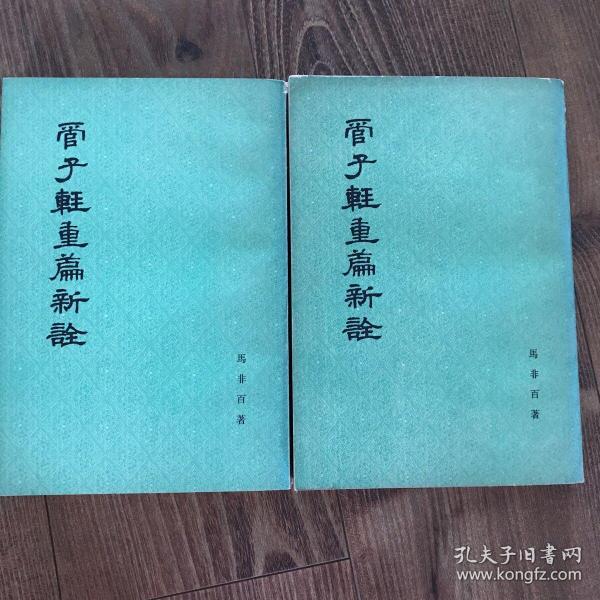 管子輕重篇新詮
馬非百著
管子輕重篇新詮
馬非百著
孔夫子旧書网
www.kongfz.com